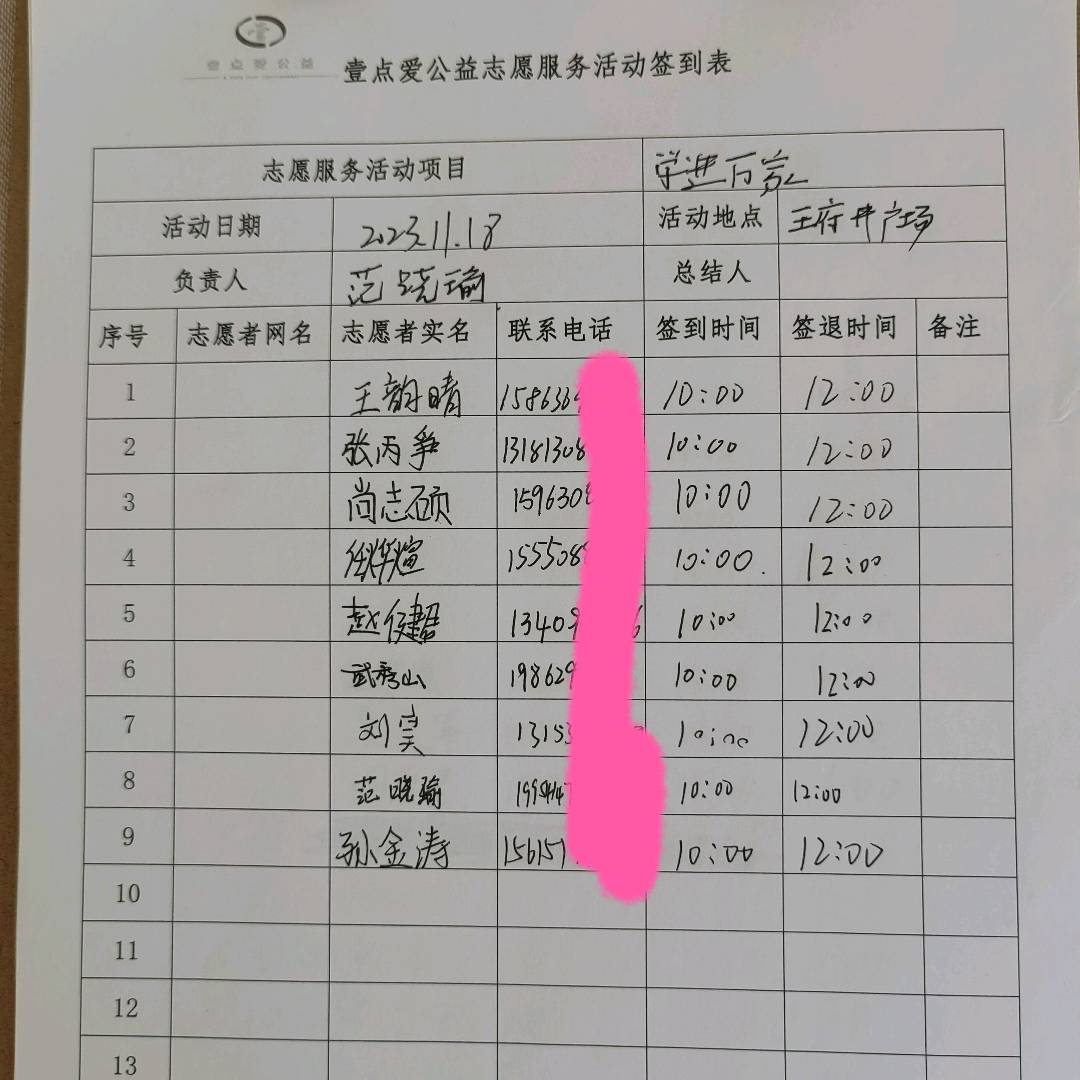 壹点爱公益
壹点爱公益志愿服务活动签到表
志愿服务活动项目 学进万家
活动日期 2023.11.18 活动地点 王府井广场
负责人 范晓瑜 总结人
序号 志愿者网名 志愿者实名 联系电话 签到时间 签退时间 备注
1 王韵晴 158636 10:00 12:00
2 张丙争 1318130 10:00 12:00
3 尚志硕 159630 10:00 12:00
4 任烨煊 155508 10:00 12:00
5 赵俊 13409 6 10:00 12:00
6 武秀山 198629 10:00 12:00
7 刘昊 13153 10:00 12:00
8 范晓瑜 10:00 12:00
9 孙金涛 156151 10:00 12:00
10
11
12
13